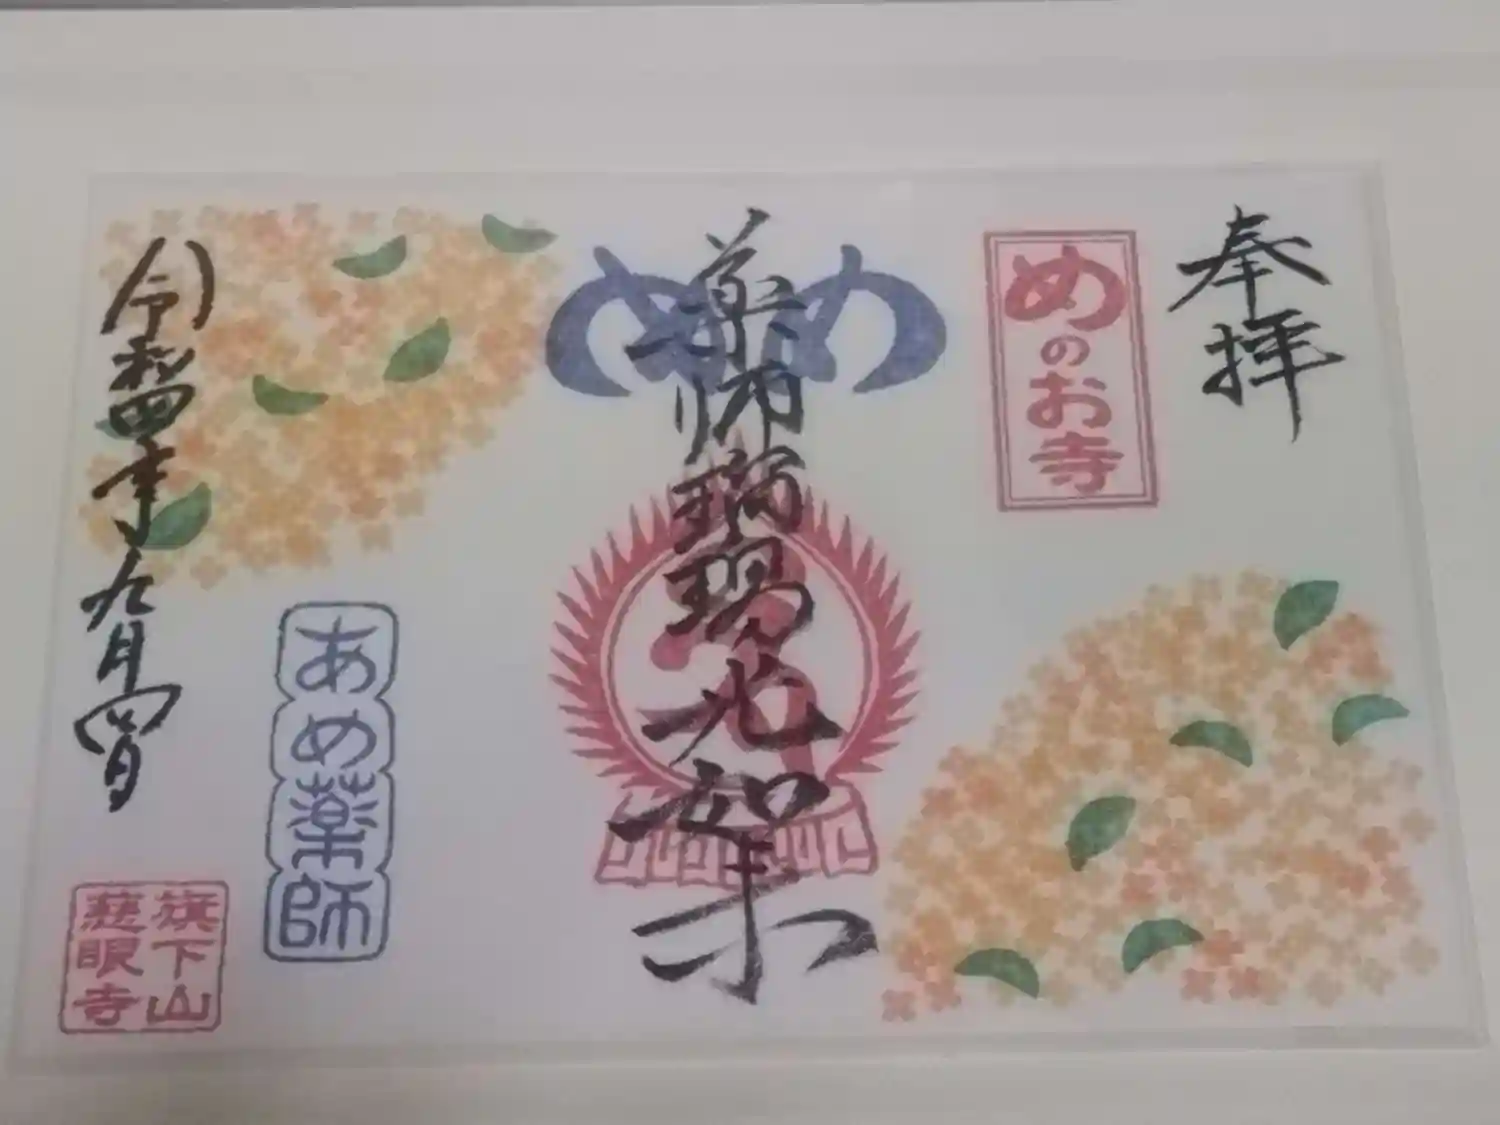 奉拝
めのお寺
めめ
薬師瑠璃光如来
あめ薬師
令和四年九月四日
旗下山
慈眼寺